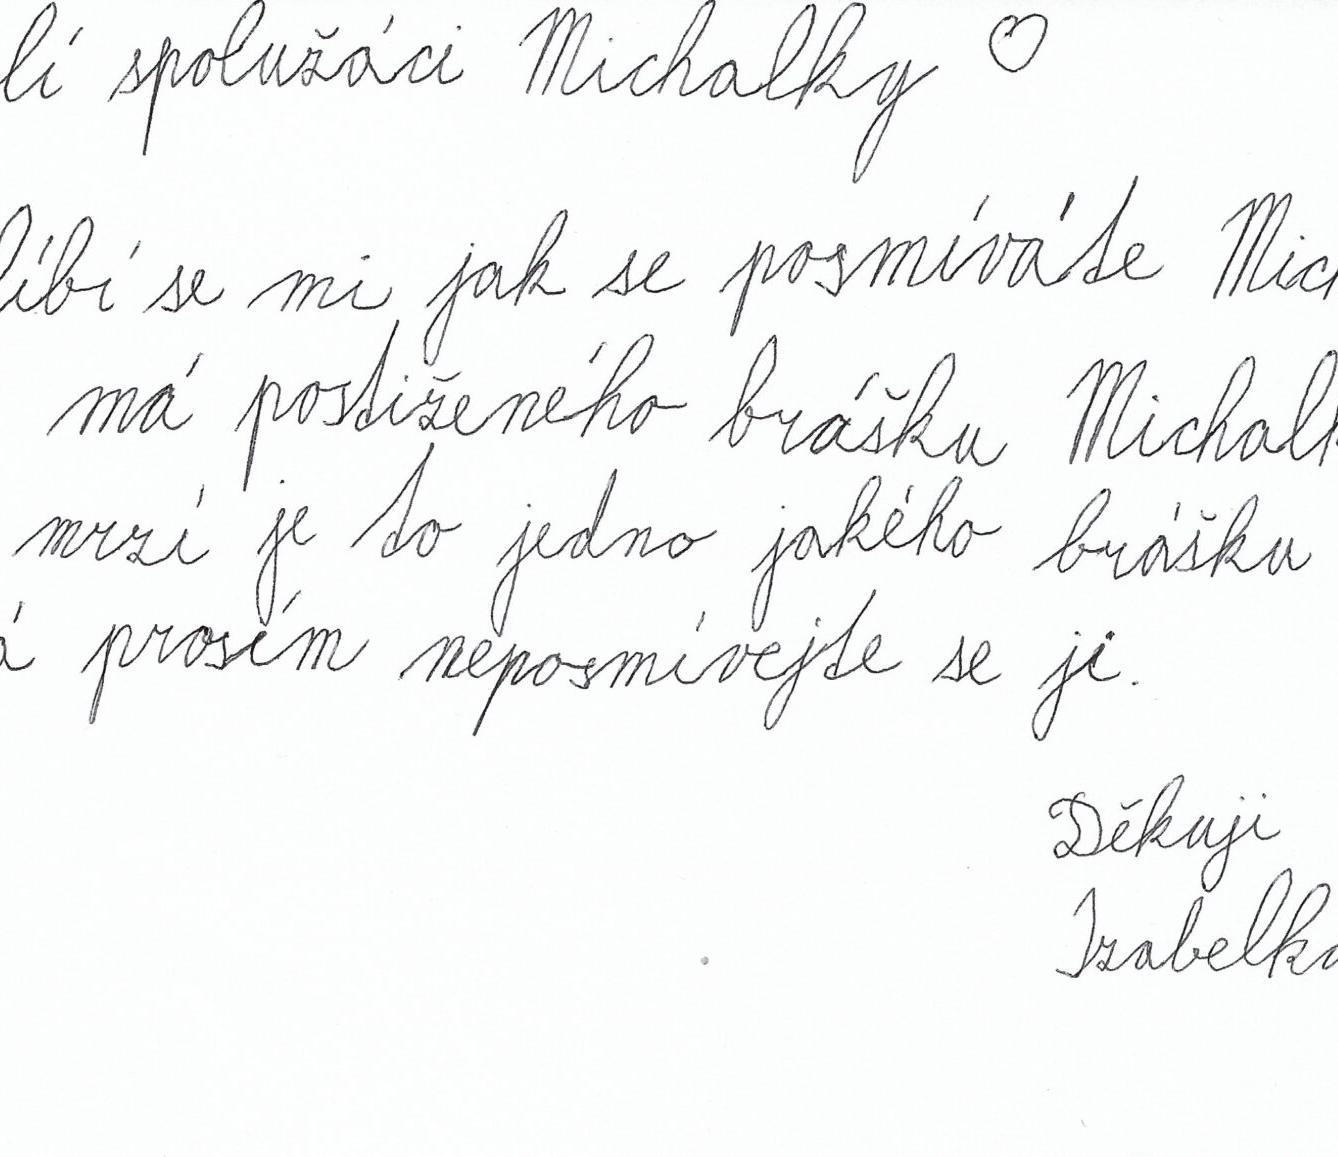 lí spolužáci Michalky ♡
líbí se mi jak se posmíváte Mic
má postiženého brášku Michalk
mrzí je to jedno jakého brášku
á prosím neposmívejte se ji.
Děkuji
Izabelka